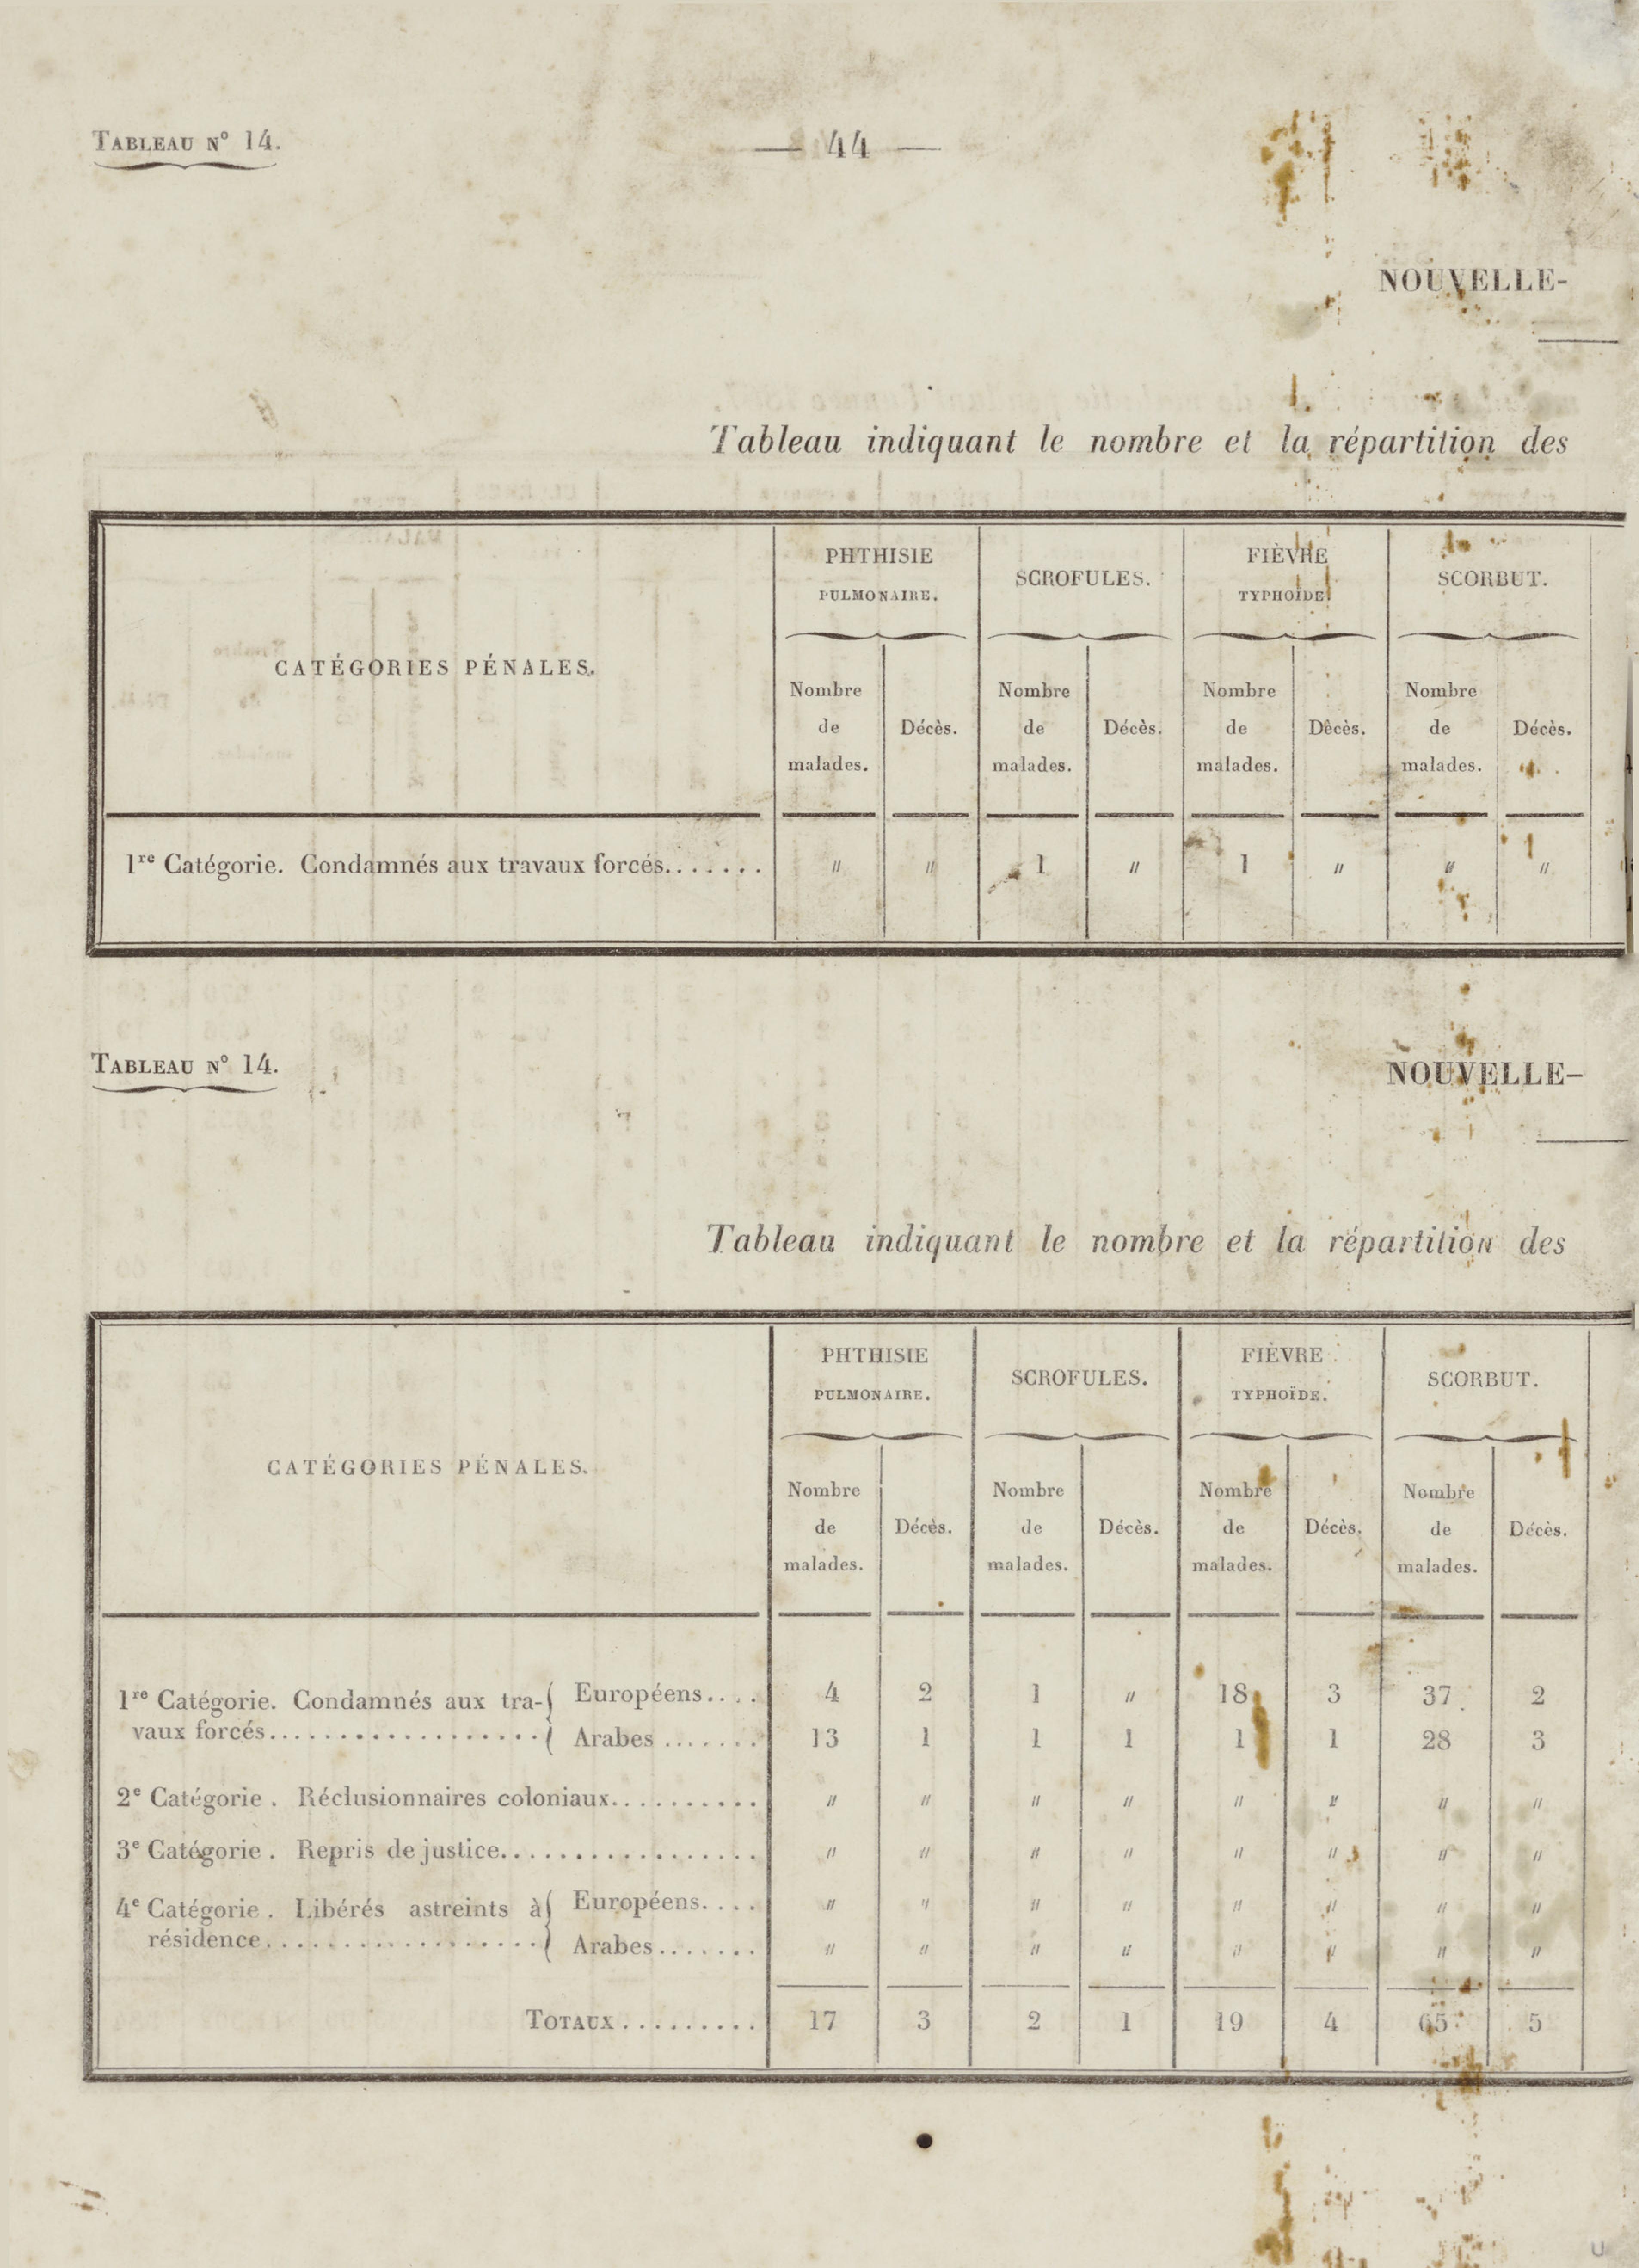 TABLEAU N° 14.
— 44 —
NOUVELLE-
Tableau indiquant le nombre et la répartition des
CATÉGORIES PÉNALES.
PHTHISIE
PULMONAIRE.
SCROFULES.
FIÈVRE
TYPHOÏDE.
SCORBUT.
Nombre
de
malades.
Décès.
Nombre
de
malades.
Décès.
Nombre
de
malades.
Décès.
Nombre
de
malades.
Décès.
1re Catégorie. Condamnés aux travaux forcés....... " " 1 " 1 " " "
TABLEAU N° 14.
NOUVELLE-
Tableau indiquant le nombre et la répartition des
CATÉGORIES PÉNALES.
PHTHISIE
PULMONAIRE.
SCROFULES.
FIÈVRE
TYPHOÏDE.
SCORBUT.
Nombre
de
malades.
Décès.
Nombre
de
malades.
Décès.
Nombre
de
malades.
Décès.
Nombre
de
malades.
Décès.
1re Catégorie. Condamnés aux tra- Européens.... 4 2 1 " 18 3 37 2
vaux forcés.................. Arabes ....... 13 1 1 1 1 1 28 3
2e Catégorie . Réclusionnaires coloniaux.......... " " " " " " " "
3e Catégorie . Repris de justice................. " " " " " " " "
4e Catégorie . Libérés astreints à Européens.... " " " " " " " "
résidence.................. Arabes....... " " " " " " " "
TOTAUX......... 17 3 2 1 19 4 65 5